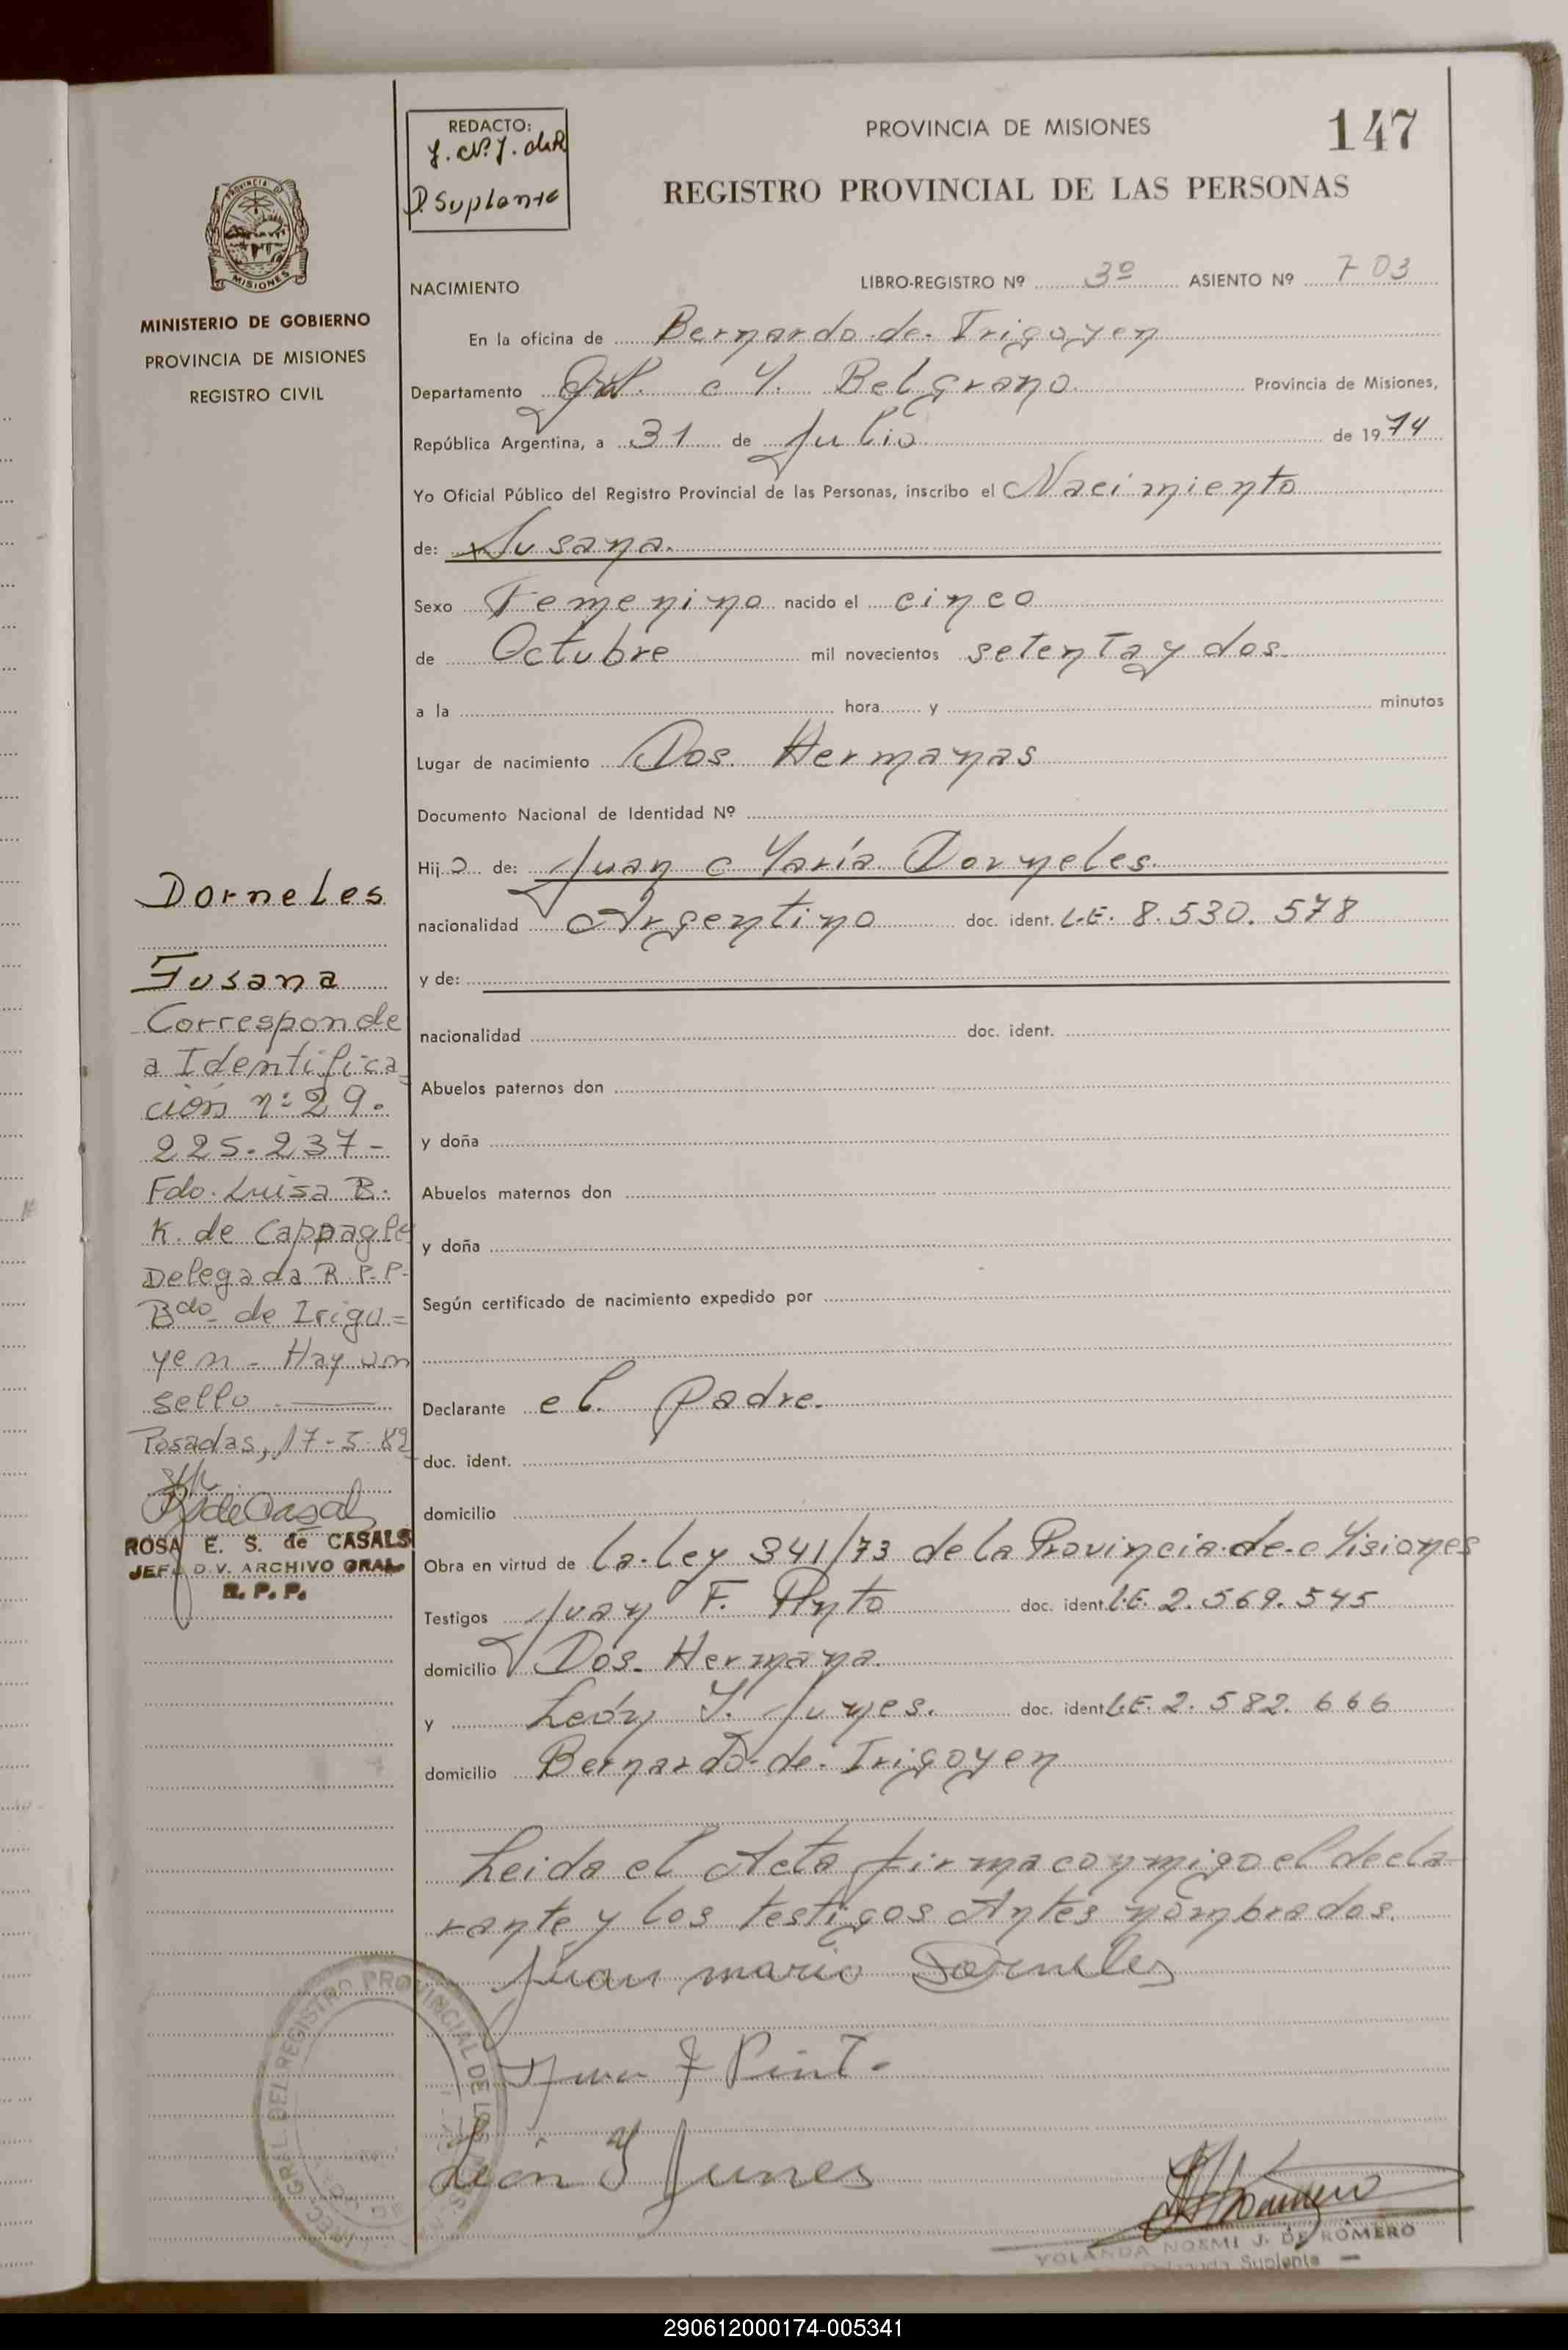 147
PROVINCIA DE MISIONES
REGISTRO PROVINCIAL DE LAS PERSONAS
REDACTO:
Y. N. J. de R
D. Suplente
PROVINCIA DE
MISIONES
MINISTERIO DE GOBIERNO
PROVINCIA DE MISIONES
REGISTRO CIVIL
NACIMIENTO LIBRO-REGISTRO Nº 3º ASIENTO Nº 703
En la oficina de Bernardo de Irigoyen
Departamento Gral. M. Belgrano Provincia de Misiones,
República Argentina, a 31 de Julio de 1974
Yo Oficial Público del Registro Provincial de las Personas, inscribo el Nacimiento
de: Susana.
Sexo Femenino nacido el cinco
de Octubre mil novecientos setenta y dos.
a la hora y minutos
Lugar de nacimiento Dos Hermanas
Documento Nacional de Identidad Nº
Hij o de: Juan María Dorneles.
nacionalidad Argentino doc. ident. L.E. 8.530.578
y de:
nacionalidad doc. ident.
Abuelos paternos don
y doña
Abuelos maternos don
y doña
Según certificado de nacimiento expedido por
Declarante el padre.
doc. ident.
domicilio
Obra en virtud de la Ley 341/73 de la Provincia de Misiones
Testigos Juan F. Pinto doc. ident. L.E. 2.569.545
domicilio Dos Hermana.
y León Y. Junes. doc. ident. L.E. 2.582.666
domicilio Bernardo de Irigoyen
Leida el Acta firma conmigo el decla-
rante y los testigos Antes nombrados.
Juan mario Dorneles
Juan F Pint.
León Y Junes
YOLANDA NOEMI J. DE ROMERO
Delegada Suplente
Dorneles
Susana
Corresponde
a Identifica-
ción nº 29.
225.237-
Fdo. Luisa B.
K. de Cappagli
Delegada R.P.P.
Bdo. de Irigo=
yen - Hay un
sello
Posadas, 17-5-82
ROSA E. S. de CASALS
JEFA DIV. ARCHIVO GRAL
R. P. P.
DEL REGISTRO PROVINCIAL DE LAS
290612000174-005341